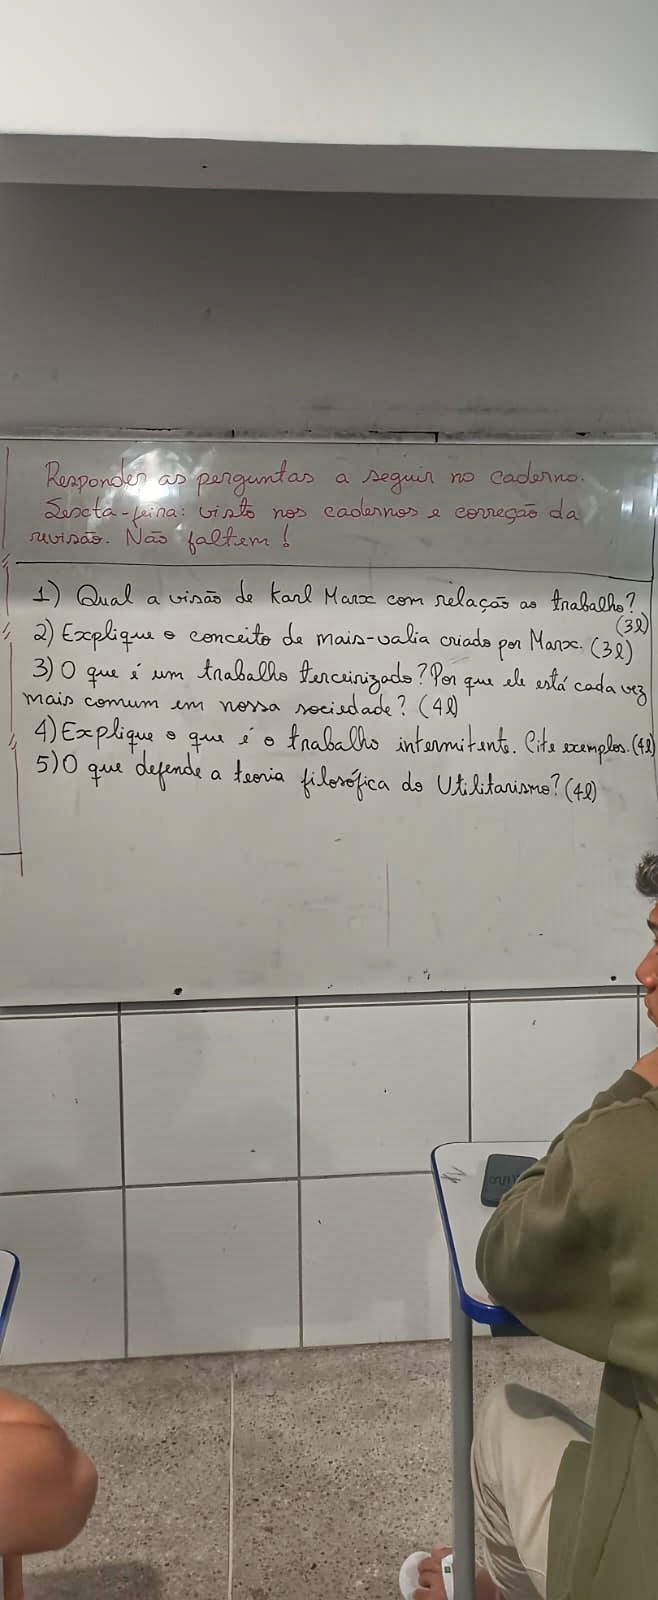 Responder as perguntas a seguir no caderno.
Sexta-feira: visto nos cadernos e correção da
revisão. Não faltem!
1) Qual a visão de Karl Marx com relação ao trabalho?
(3l)
2) Explique o conceito de mais-valia criado por Marx. (3l)
3) O que é um trabalho terceirizado? Por que ele está cada vez
mais comum em nossa sociedade? (4l)
4) Explique o que é o trabalho intermitente. Cite exemplos. (4l)
5) O que defende a teoria filosófica do Utilitarismo? (4l)